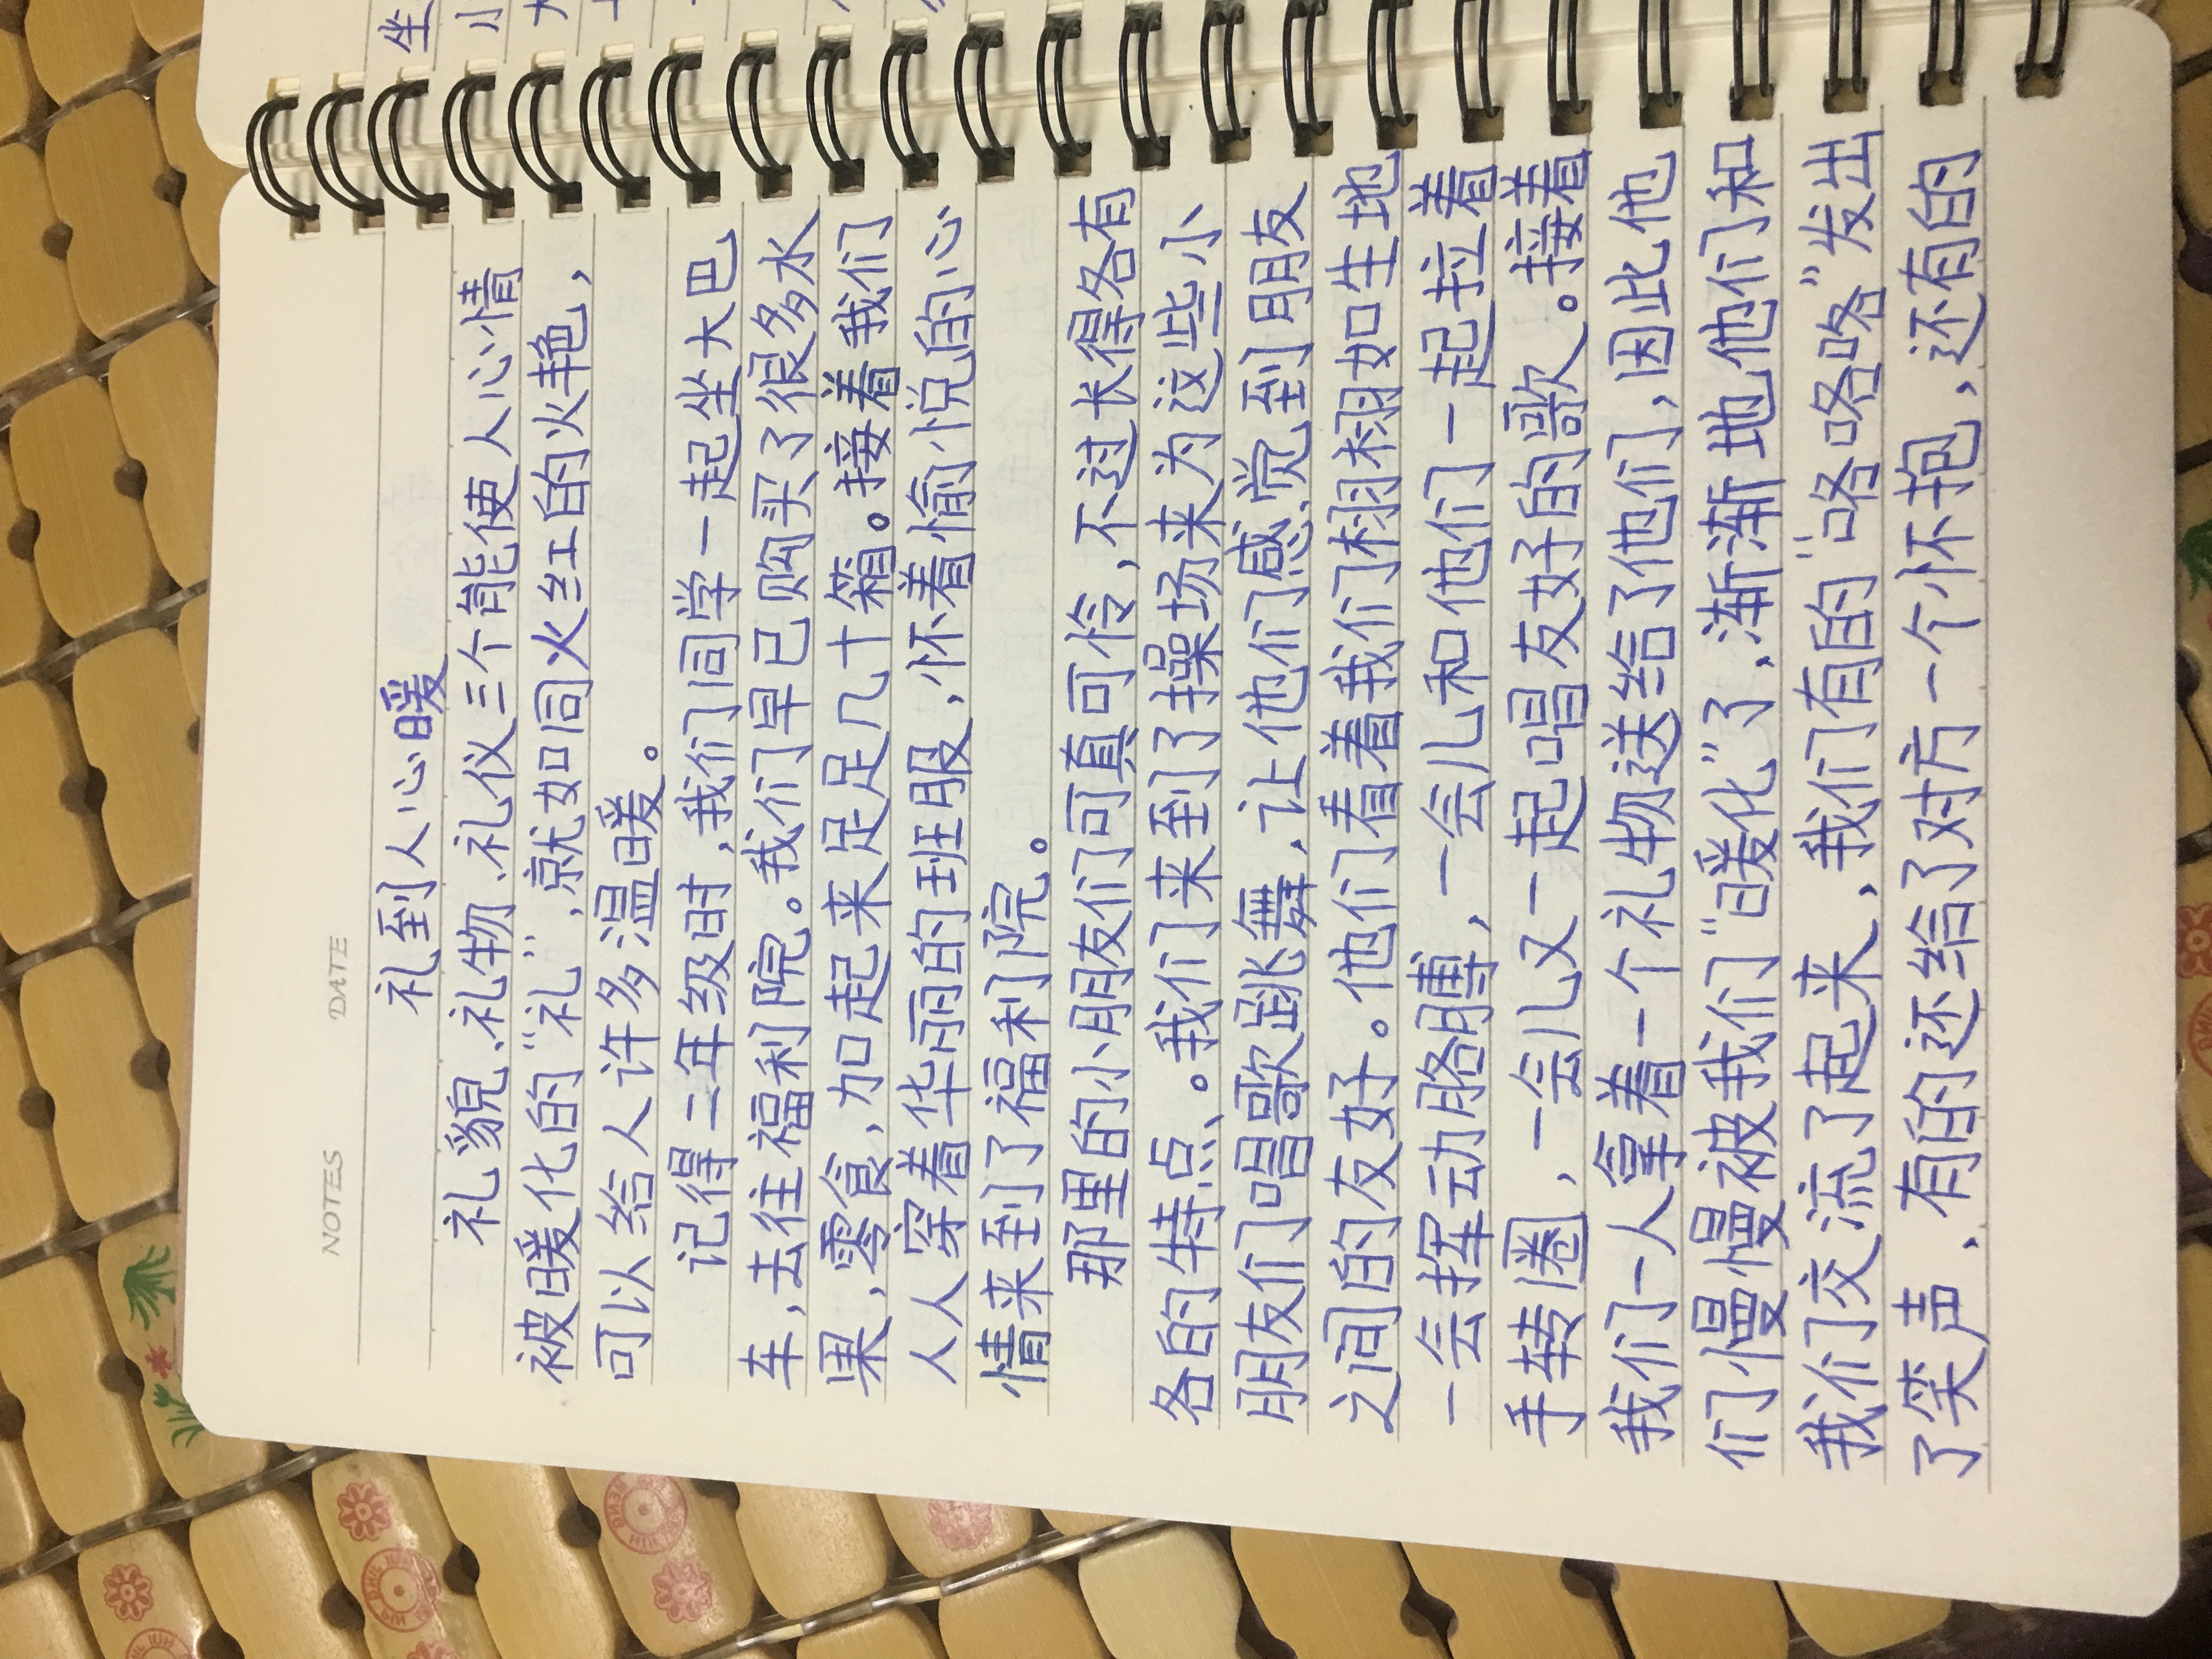 NOTES DATE
礼到人心暖
礼貌、礼物、礼仪三个能使人心情
被暖化的“礼”,就如同火红的火艳,
可以给人许多温暖。
记得二年级时,我们同学一起坐大巴
车,去往福利院。我们早已购买了很多水
果,零食,加起来足足几十箱。接着我们
人人穿着华丽的班服,怀着愉悦的心
情来到了福利院。
那里的小朋友们可真可怜,不过长得各有
各的特点、。我们来到了操场来为这些小
朋友们唱歌跳舞,让他们感觉到朋友
之间的友好。他们看着我们栩栩如生地
一会挥动胳膊,一会儿和他们一起拉着
手转圈,一会儿又一起唱友好的歌。接着
我们一人拿着一个礼物送给了他们,因此他
们慢慢被我们“暖化”了,渐渐地他们和
我们交流了起来,我们有的“咯咯”发出
了笑声,有的还给了对方一个怀抱,还有的